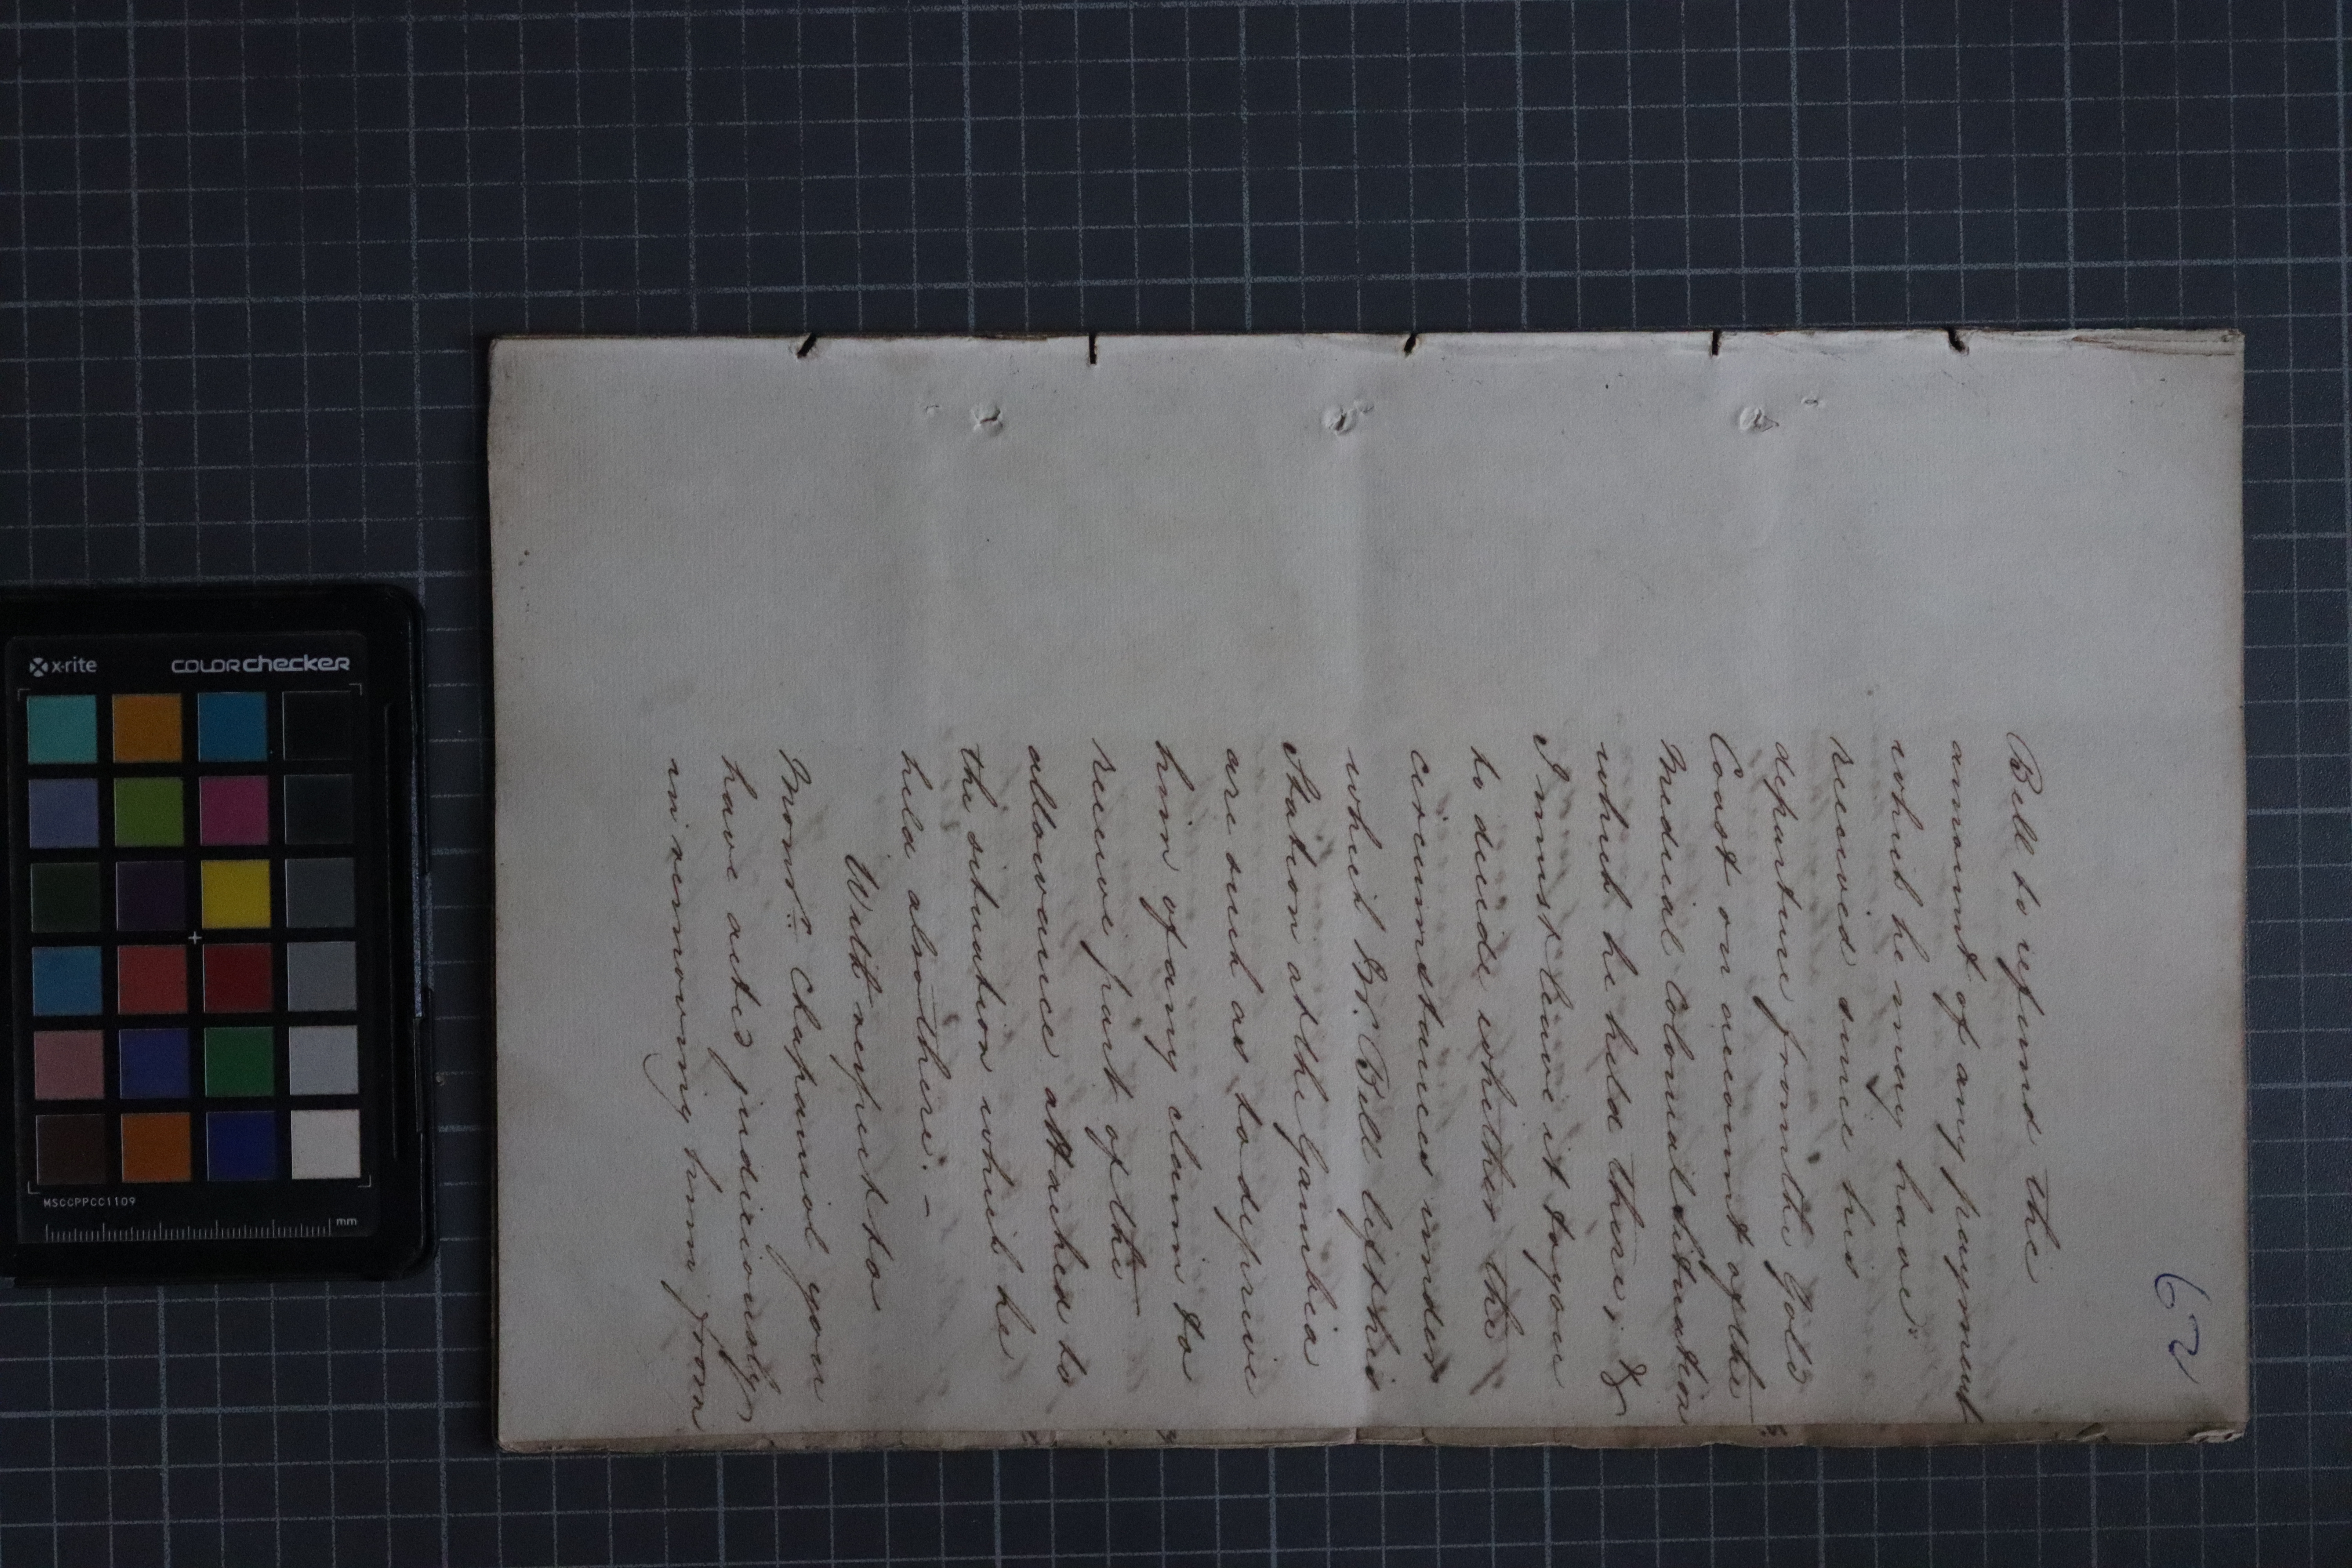 62
Bell to refund the
amount of any payment
which he may have
received since his
departure from the Gold
Coast on account of the
Medical Colonial Situation
which he held there; &
I must leave it to you
to decide whether the
circumstances under
which Mr. Bell left his
Station at the Gambia
are such as to deprive
him of any claim to
receive part of the
allowance attached to
the situation which he
held also there. -
With respect to
Monsr. Chapaniol you
have acted judiciously
in removing him from
x-rite
COLORchecker
MSCCPPCC1109
mm